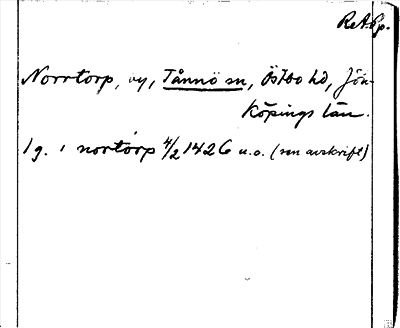 ReA Sp.
Norrtorp, by, Tånnö sn, Östbo hd, Jön-
köpings län.
1 g. i nortorp 4/2 1426 u.o. (sen avskrift)